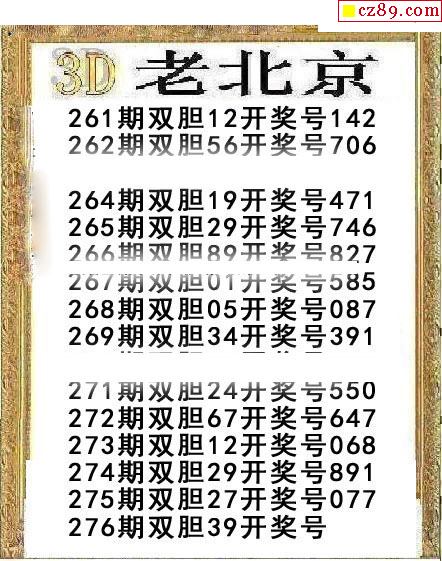 cz89.com
3D 老北京
261期双胆12开奖号142
262期双胆56开奖号706
264期双胆19开奖号471
265期双胆29开奖号746
266期双胆89开奖号827
267期双胆01开奖号585
268期双胆05开奖号087
269期双胆34开奖号391
271期双胆24开奖号550
272期双胆67开奖号647
273期双胆12开奖号068
274期双胆29开奖号891
275期双胆27开奖号077
276期双胆39开奖号